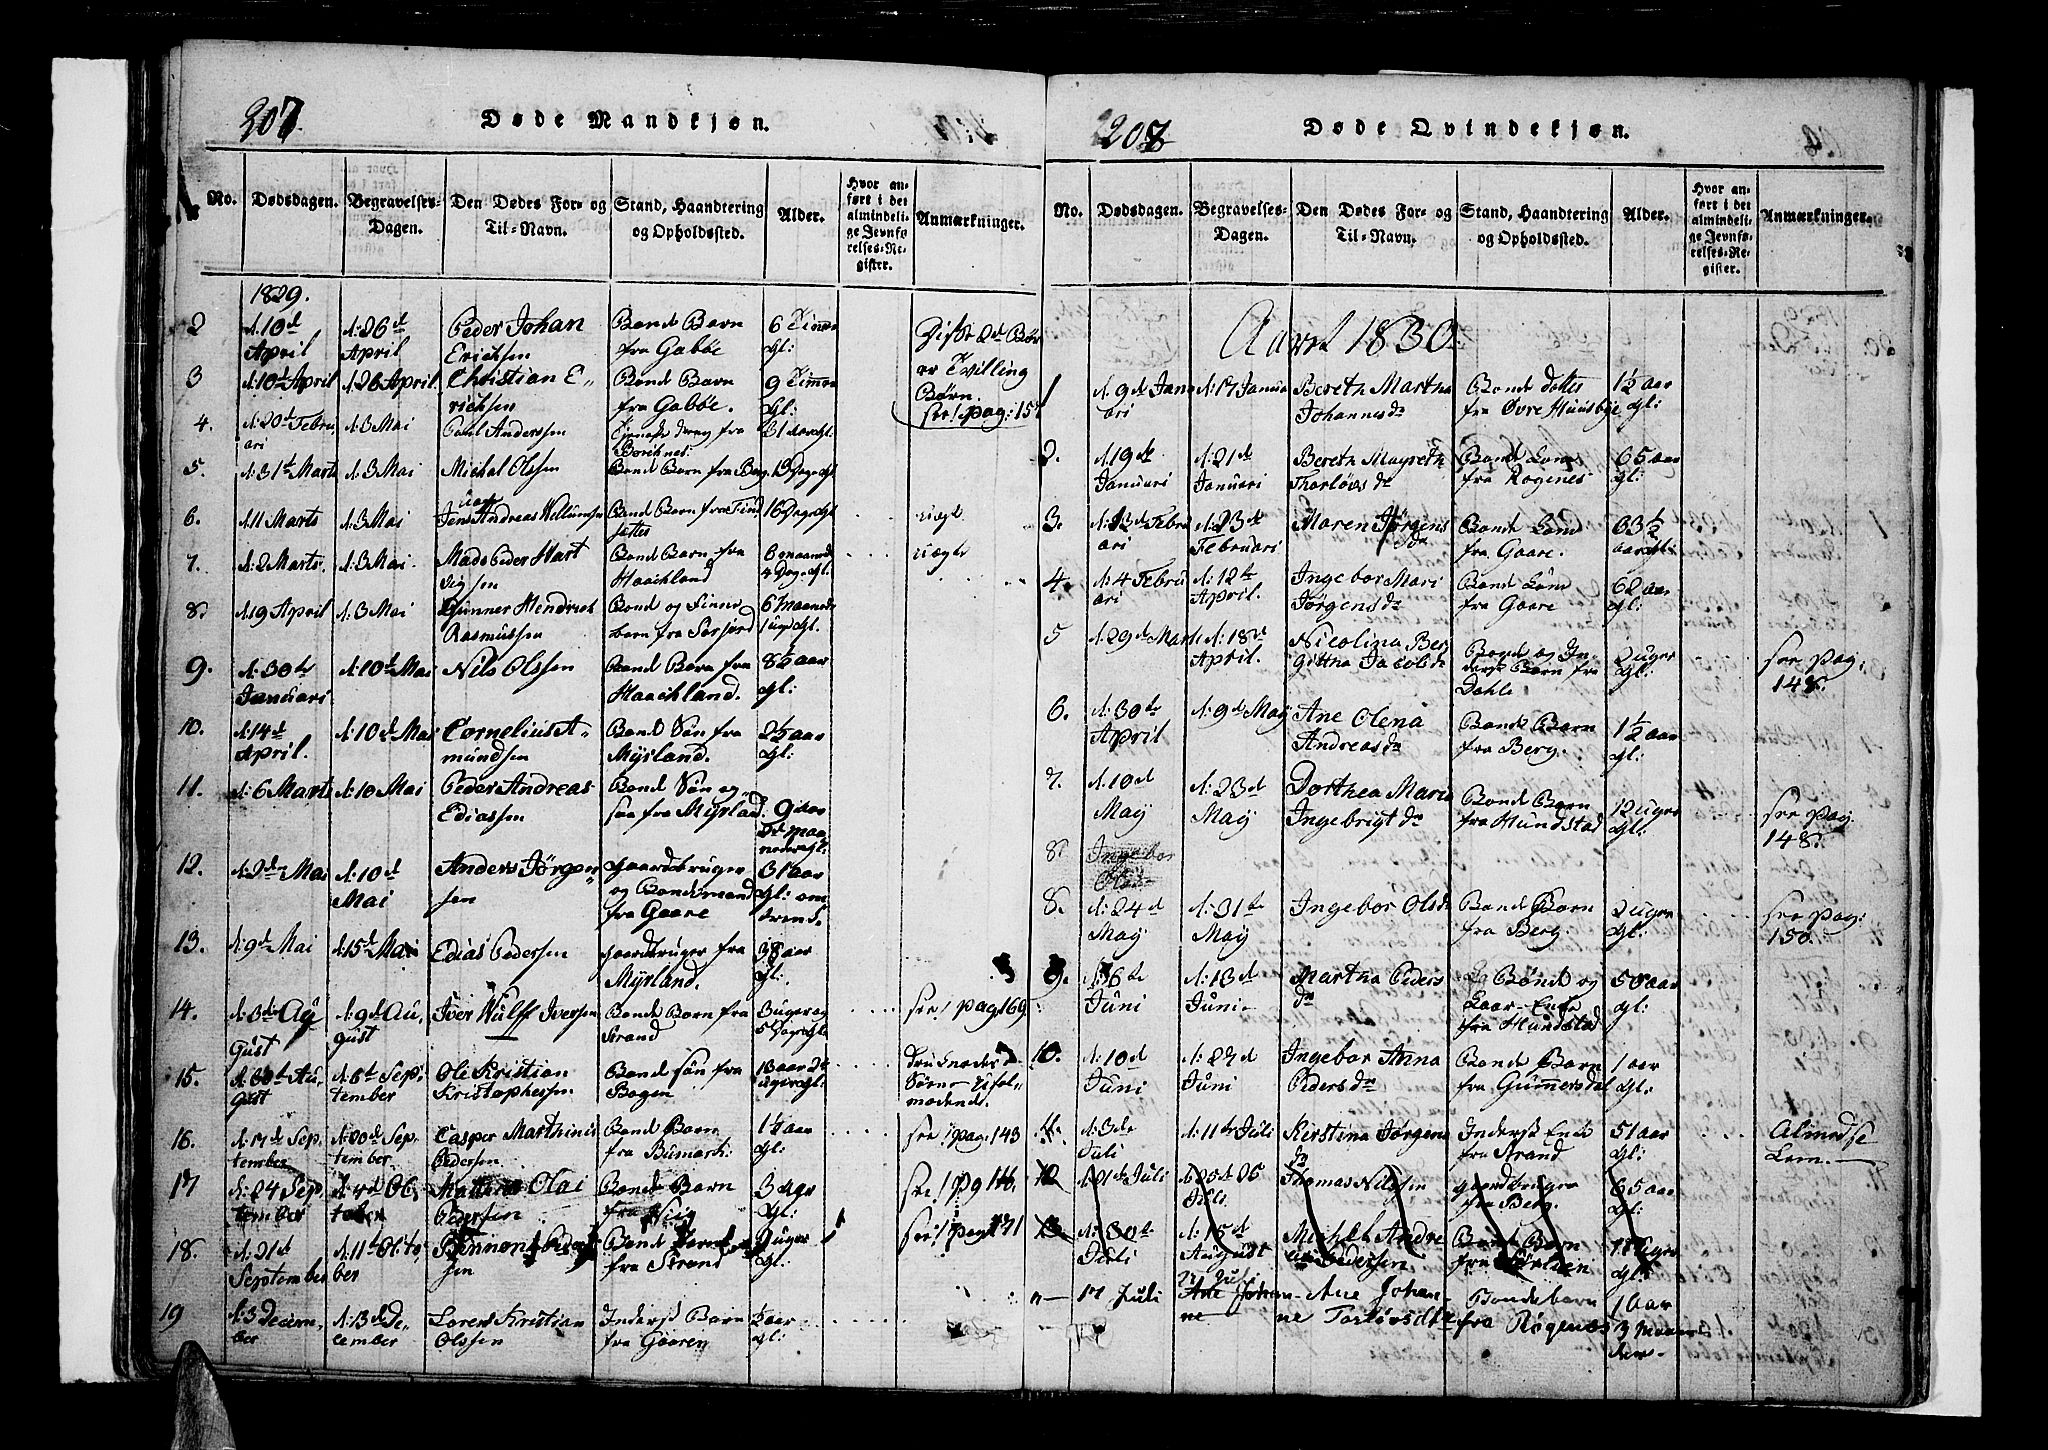 207.
Døde Mandkjøn.
No.
Dødsdagen.
Begravelses-
Dagen.
Den Dødes For- og
Til-Navn.
Stand, Haandtering
og Opholdssted.
Alder.
Hvor an-
ført i det
almindeli-
ge Jevnfø-
relses-Re-
gister.
Anmærkninger.
1829.
2
d: 10d April
d: 26d April
Peder Johan Erichsen
Bonde Barn fra Gaböe
6 Timer gl:
Disse 2de Børn er Tvilling Børn. see! pag: 157
3
d: 10d April
d: 26 April
Christian Erichsen
Bonde Barn fra Gaböe.
9 Timer gl:
4.
d: 20d Februari
d: 3 Mai
Paul Anderssen
31 aar gl:
5.
d: 31te Marts
d: 3 Mai
Michel Olssen
Bonde Barn fra Berg.
13 Dage gl:
6.
d: 11 Marts
d: 3 Mai
Jens Andreas Willumsen
Bonde Barn fra Find sættes
16 Dage gl:
uægte
7.
d: 2 Marts
d: 3 Mai
Mads Peder Hartvigsen
Bonde Barn fra Haachland
6 maaneder 4 Dage gl:
uægte
8.
d: 19 April
d: 3 Mai
Gunner Hendrich Rasmussen
Bonde og Finne barn fra Sørfiord
6 maaneder 1 uge gl.
9.
d: 30te Januari
d: 10d Mai
Nils Olssen
Bonde Barn fra Haachland.
8½ aar gl:
10.
d: 14d April.
d: 10d Mai
Cornelius Amundsen
Bonde Søn fra Myrland.
2½ aar gl:
11.
d: 6 Marts
d: 10 Mai
Peder Andreas Ediassen
Bonde Søn fra Myrland.
9 aar
12.
d: 2d Mai
d: 10d Mai
Anders Jörgensen
Gaardbruger og Bondemand fra Gaare
31 aar gl: omtrent.
13.
d: 9d Mai
d: 15d Mai
Edias Pedersen
Gaardbruger fra Myrland.
38 aar gl:
14.
d: 3die August
d: 9d August
Iver Wulff Iversen
Bonde Barn fra Strand
3 uger og 5 Dage gl:
see! pag 169
15.
August
d: 6d September
Ole Kristian Kristophersen
Bonde søn fra Bogen
Druknede i Søen
16.
d: 17d September
d: 20d September.
Casper Marthinus Pedersen
Bonde Barn fra Bumark:
1½ aar gl:
see! pag: 143
17
d: 24 September
d: 4d October
Olai Pedersen
Bonde Barn
3 dage gl:
see! Pg 146.
18.
d: 21d September
d: 11te October
Bonde Barn fra Strand
2 uger gl:
see! pag 171
19
d: 3 December
d: 13d December
Lorents Kristian Olssen
Inderst Barn fra Gaaren
½ aar gl:
207
Døde Qvindekjøn.
No.
Dødsdagen.
Begravelses-
Dagen.
Den Dødes For- og
Til-Navn.
Stand, Haandtering
og Opholdssted.
Alder.
Hvor an-
ført i det
almindeli-
ge Jevnfø-
relses-Re-
gister.
Anmærkninger.
Aaret 1830.
1
d: 9d Januari
d: 17 Januari
Bereth Martha Johannesdr
Bonde datter fra Øvre Huusbye
1½ aar gl:
2.
d: 19de Januari
d: 21d Januari
Bereth Magreth Thorløvsdr
Bonde Kone fra Rogenes
65 aar gl:
3.
d: 13de Februari
d: 23de Februari
Maren Jørgensdr
Bonde Kone fra Gaare.
63½ aar gl:
4.
d: 4 Februari
d: 12te April.
Ingebor Mari Jørgensdr
Bonde Kone fra Gaare
62 aar gl:
5
d: 29de Marts
d: 18de April.
Nicolina Bergitha Jacobsdr
Bonde og Inderst Barn fra Dahle
2 uger gl:
see pag: 148.
6.
d: 30te April
d: 9d May
Ane Olena Andreasdr
Bonde Barn fra Berg.
1½ aar gl:
7.
d: 10d May
d: 23d May
Dorthea Maria Ingebrigtdr
Bonde Barn fra Hundstad
12 uger gl:
see pag: 148.
8.
Ingebor
8.
d: 24d May
d: 31te May
Ingebor Olsdr
Bonde Barn fra Berg.
2 uger gl:
see pag: 150.
9.
d: 6te Juni
d: 13d Juni
Martha Pedersdr
fra Hundstad
50 aar gl:
10.
d: 10d Juni
d: 27d Juni
Ingebor Anna Pedersdr
Bonde Barn fra Gunnersdal
1 aar gl:
11.
d: 3de Juli
d: 11te Juli
Kirstina Jørgensdr
Inderst Enke fra Strand
51 aar gl:
Almisse Lem.
12
d: 21de Juli
Juli.
Thomas Nilssen
gaardbruger fra Berg.
65 aar gl:
13
d: 30te Juli
d: 15d August
Michel Andreas Pedersen
Bonde Barn
uger gl:
17 Juli
Juli
Ane Johanne
Ane Johanne Torløvsdtr
Bondebarn fra Rogenæs
10 aar 3 maaneder